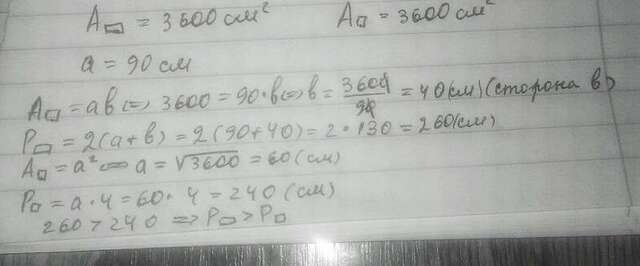 A▭ = 3600 см² A□ = 3600 см²
a = 90 см
A▭ = ab ⇔ 3600 = 90·b ⇔ b = 3600/90 = 40(см)(сторона b)
P▭ = 2(a+b) = 2(90+40) = 2·130 = 260(см)
A□ = a² ⇔ a = √3600 = 60(см)
P□ = a·4 = 60·4 = 240 (см)
260 > 240 ⇒ P▭ > P□